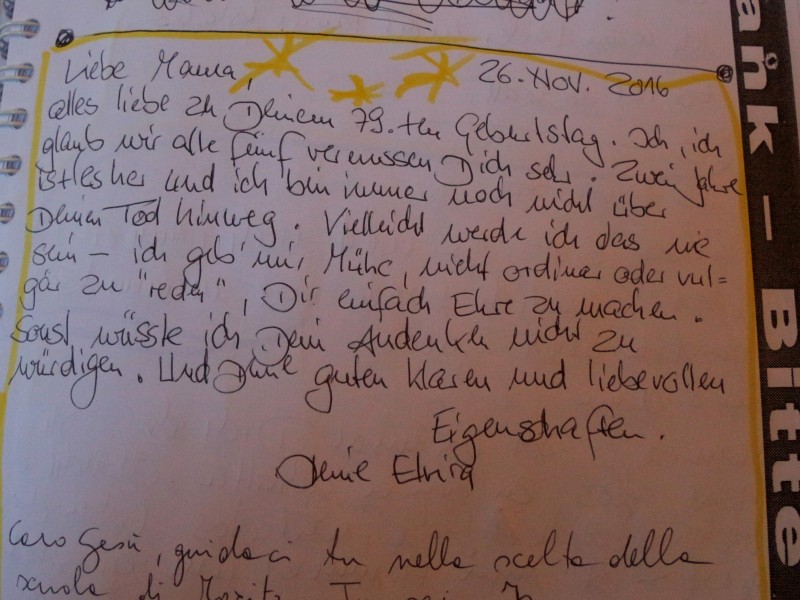 Liebe Mama,
26. Nov. 2016
alles liebe zu Deinem 79.ten Geburtstag. Ich, ich
glaub wir alle fünf vermissen Dich sehr. Zwei Jahre
ist es her und ich bin immer noch nicht über
Deinen Tod hinweg. Vielleicht werde ich das nie
sein – ich geb' mir Mühe, nicht ordinär oder vul=
gär zu "reden", Dir einfach Ehre zu machen.
Sonst wüsste ich Dein Andenken nicht zu
würdigen. Und Deine guten klaren und liebevollen
Eigenschaften.
Deine Elvira
Caro Gesù, guidaci tu nella scelta della
scuola di
ank – Bitte